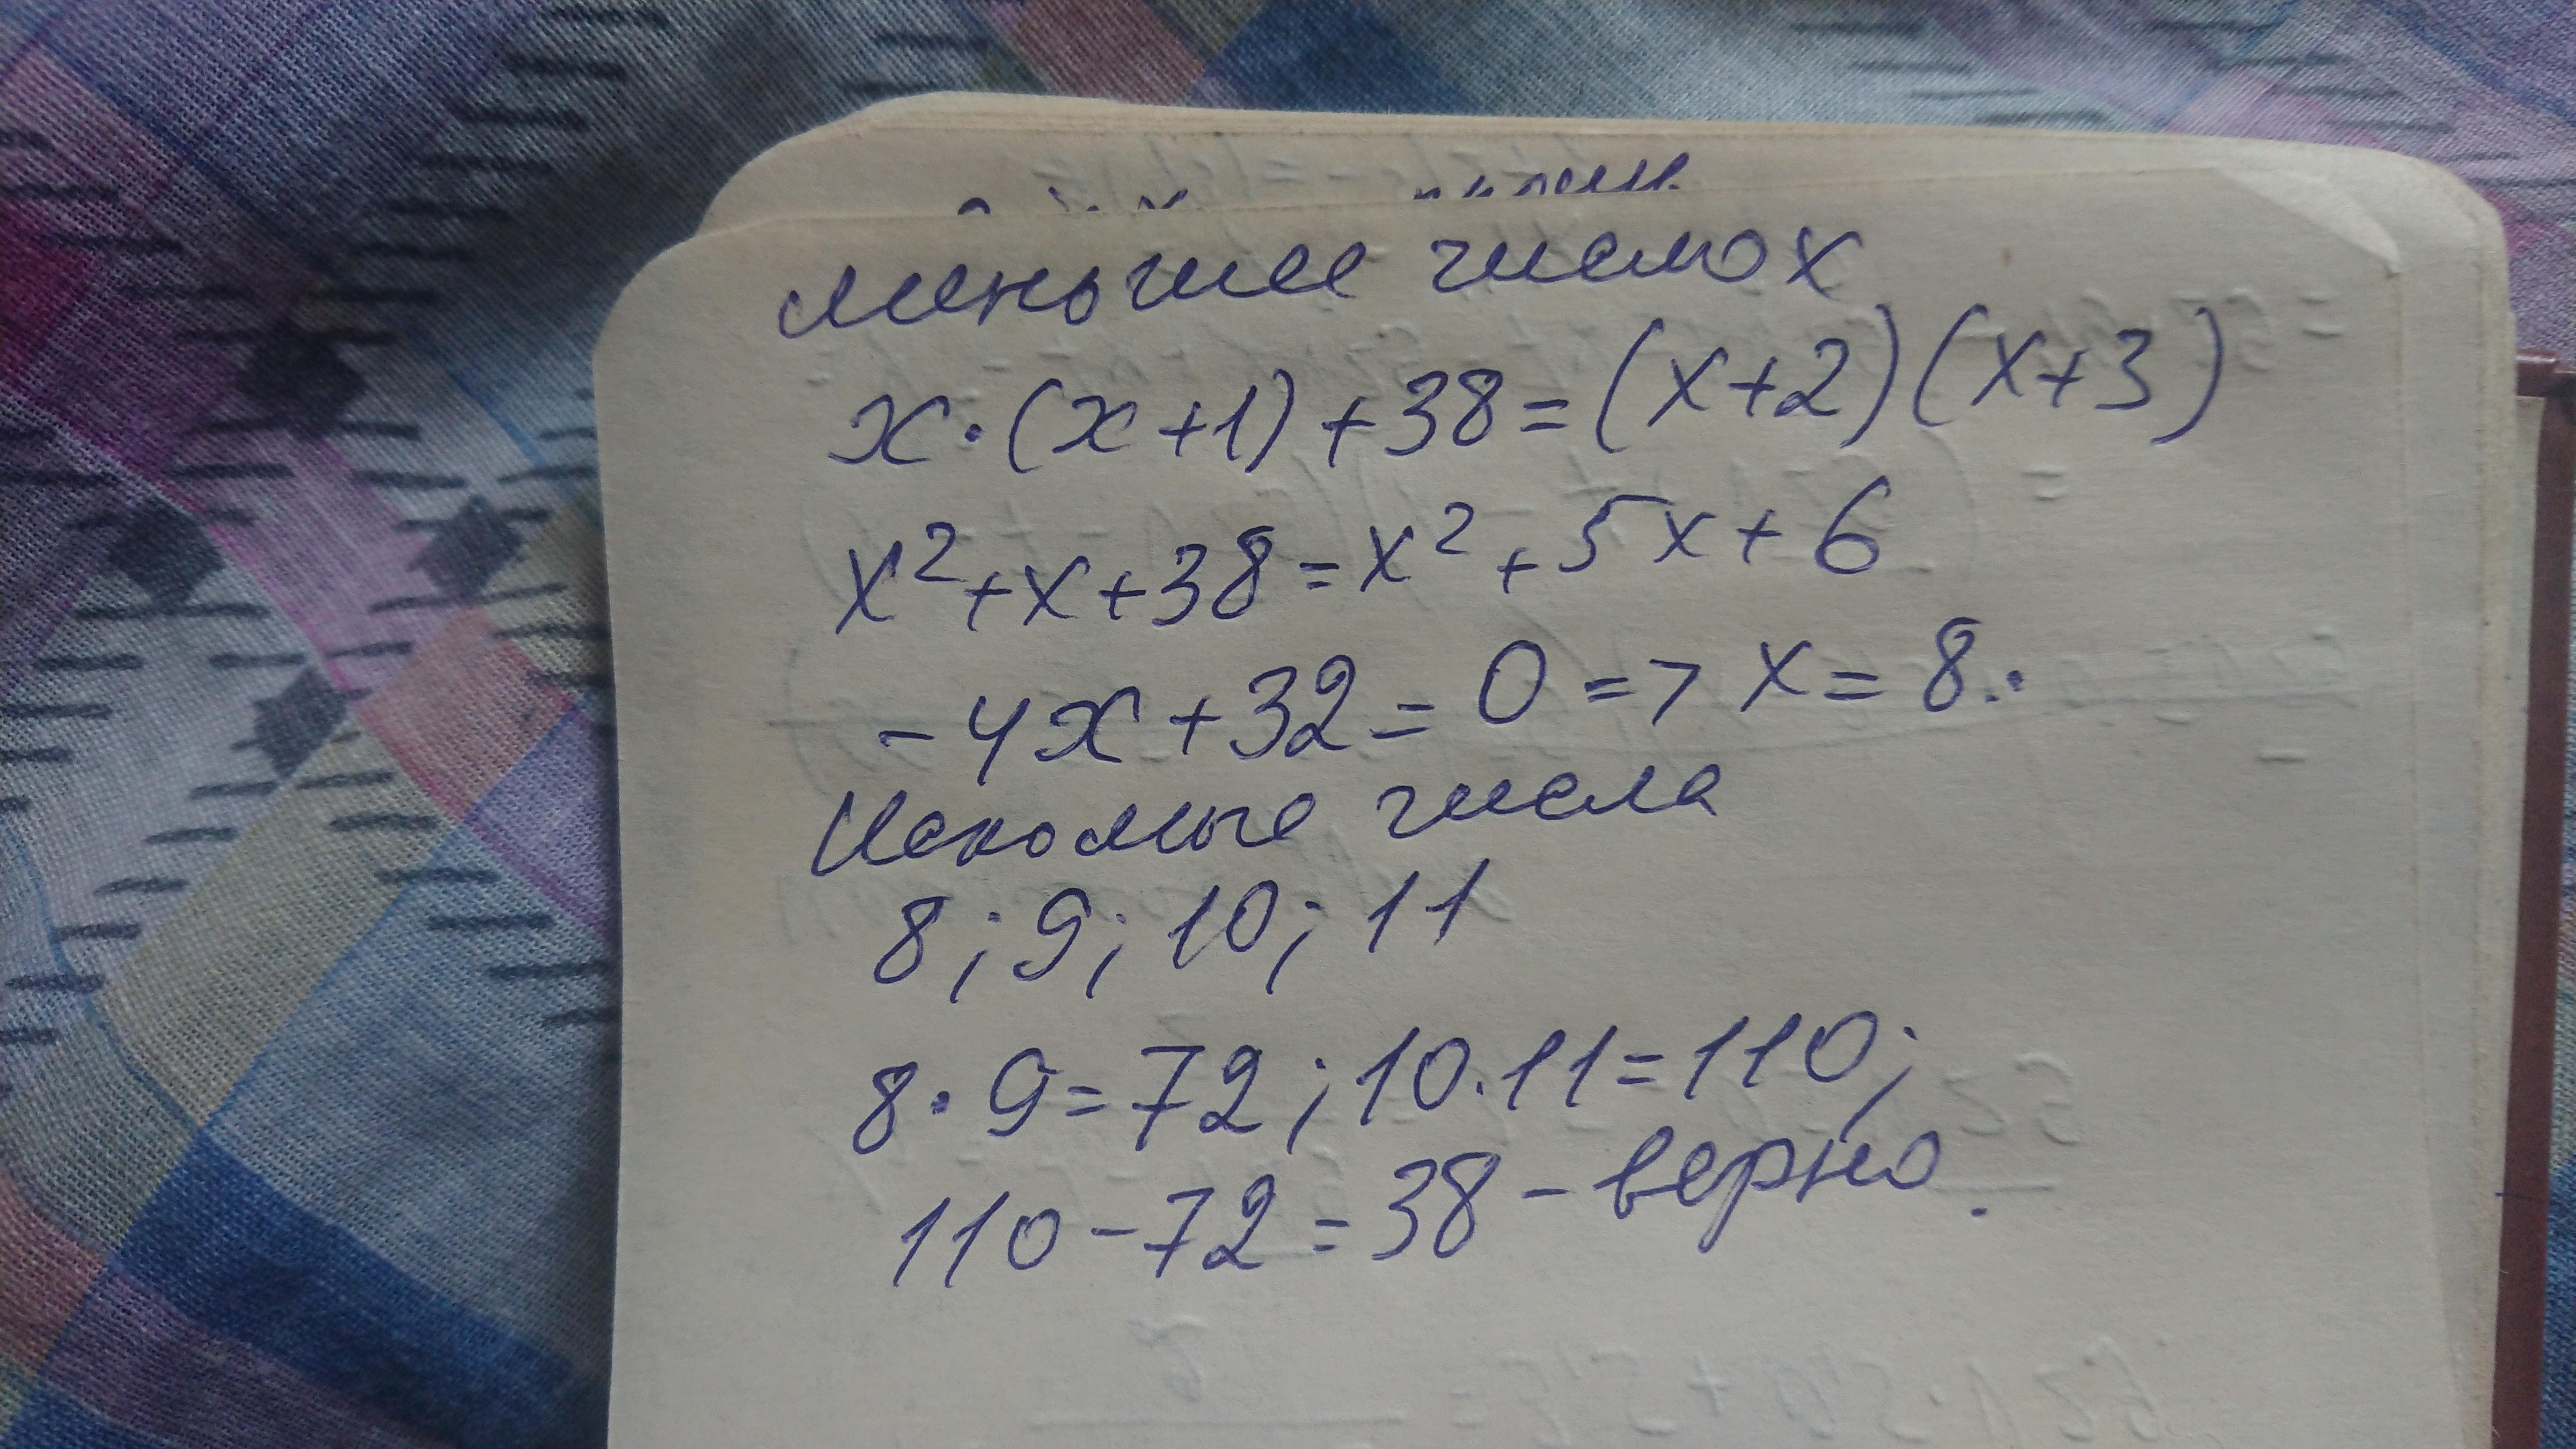 меньшее число x
x·(x+1)+38=(x+2)(x+3)
x²+x+38=x²+5x+6
-4x+32=0=>x=8.
Искомые числа
8;9;10;11
8·9=72;10·11=110;
110-72=38-верно.